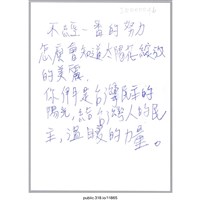 不經一番的努力
怎麼會知道太陽花綻放
的美麗.
你們是台灣民主的
陽光,給台灣人的民
主,溫暖的力量。
public.318.io/11865